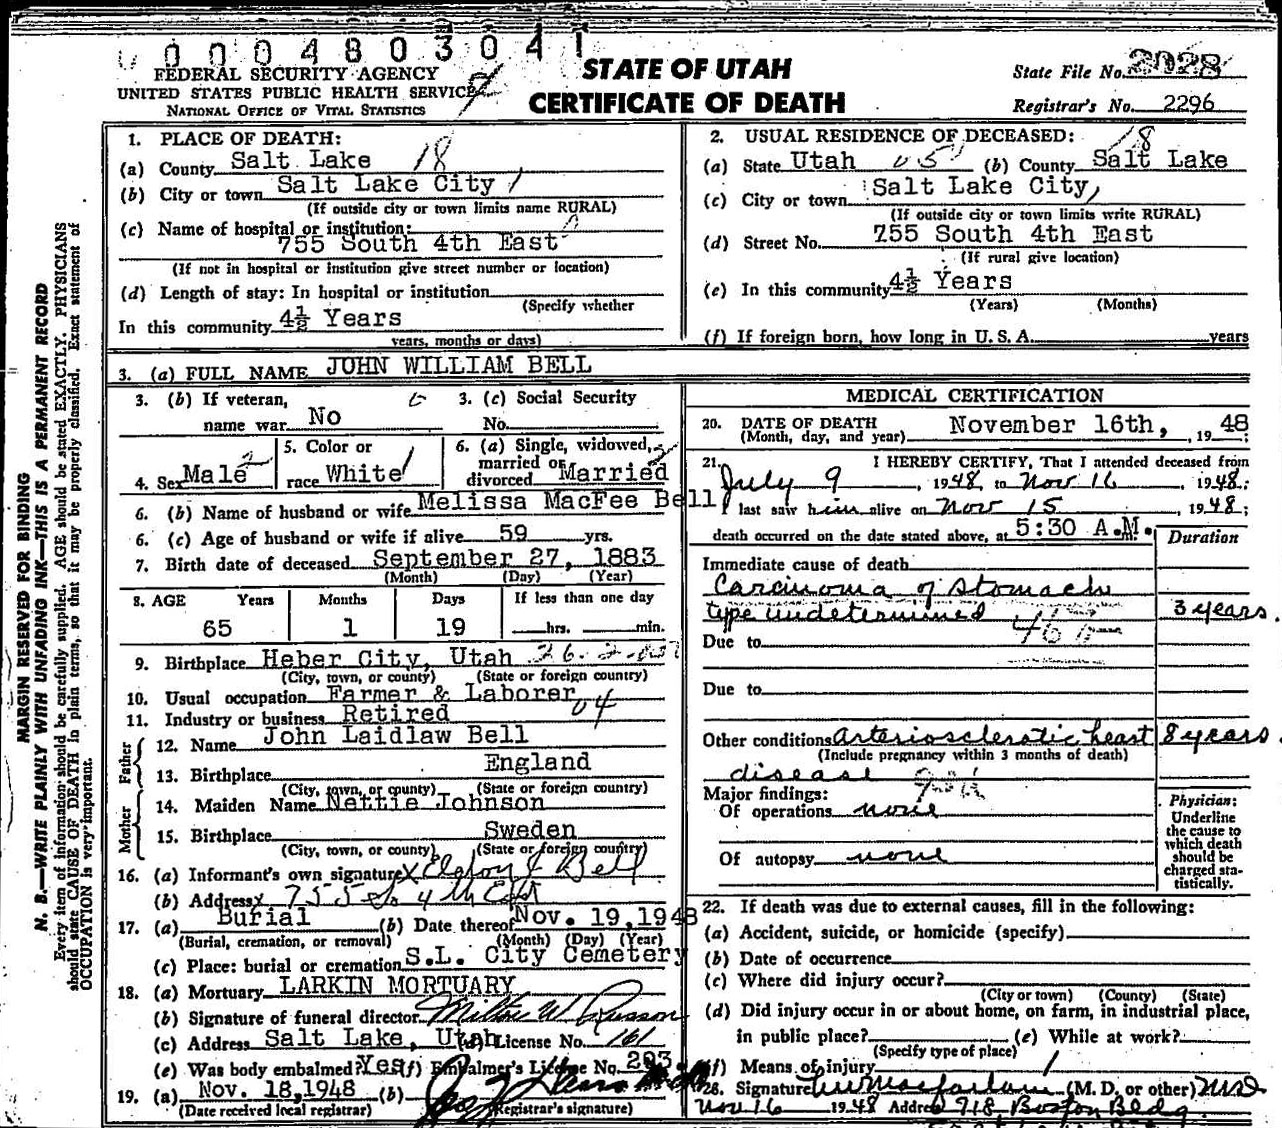 0004803041
FEDERAL SECURITY AGENCY
UNITED STATES PUBLIC HEALTH SERVICE
NATIONAL OFFICE OF VITAL STATISTICS
STATE OF UTAH
CERTIFICATE OF DEATH
State File No. 2028
Registrar's No. 2296
MARGIN RESERVED FOR BINDING
N. B.—WRITE PLAINLY WITH UNFADING INK—THIS IS A PERMANENT RECORD
Every item of information should be carefully supplied. AGE should be stated EXACTLY. PHYSICIANS
should state CAUSE OF DEATH in plain terms, so that it may be properly classified. Exact statement of
OCCUPATION is very important.
1. PLACE OF DEATH:
(a) County Salt Lake 18
(b) City or town Salt Lake City
(If outside city or town limits name RURAL)
(c) Name of hospital or institution:
755 South 4th East
(If not in hospital or institution give street number or location)
(d) Length of stay: In hospital or institution
(Specify whether
In this community 4½ Years
years, months or days)
2. USUAL RESIDENCE OF DECEASED: 18
(a) State Utah 05 (b) County Salt Lake
(c) City or town Salt Lake City,
(If outside city or town limits write RURAL)
(d) Street No. 755 South 4th East
(If rural give location)
(e) In this community 4½ Years
(Years) (Months)
(f) If foreign born, how long in U. S. A. years
3. (a) FULL NAME JOHN WILLIAM BELL
3. (b) If veteran, 3. (c) Social Security
name war No No.
4. Sex Male 2 5. Color or race White 1 6. (a) Single, widowed, married or divorced Married 2
6. (b) Name of husband or wife Melissa MacFee Bell
6. (c) Age of husband or wife if alive 59 yrs.
7. Birth date of deceased September 27, 1883
(Month) (Day) (Year)
8. AGE Years Months Days If less than one day
65 1 19 hrs. min.
9. Birthplace Heber City, Utah
(City, town, or county) (State or foreign country)
10. Usual occupation Farmer & Laborer
11. Industry or business Retired 04
Father
12. Name John Laidlaw Bell
13. Birthplace England
(City, town, or county) (State or foreign country)
Mother
14. Maiden Name Nettie Johnson
15. Birthplace Sweden
(City, town, or county) (State or foreign country)
16. (a) Informant's own signature x Bell
(b) Address x 755 So 4th East
17. (a) Burial (b) Date thereof Nov. 19, 1948
(Burial, cremation, or removal) (Month) (Day) (Year)
(c) Place: burial or cremation S.L. City Cemetery
18. (a) Mortuary LARKIN MORTUARY
(b) Signature of funeral director Milton W
(c) Address Salt Lake, Utah (d) License No. 161
(e) Was body embalmed? Yes (f) Embalmer's License No. 293
19. (a) Nov. 18, 1948 (b)
(Date received local registrar) (Registrar's signature)
MEDICAL CERTIFICATION
20. DATE OF DEATH
(Month, day, and year) November 16th, 1948;
21. I HEREBY CERTIFY, That I attended deceased from
July 9, 1948, to Nov 16, 1948;
I last saw him alive on Nov 15, 1948;
death occurred on the date stated above, at 5:30 A.M.
Duration
Immediate cause of death
Carcinoma of stomach
type undetermined 3 years.
Due to
Due to
Other conditions Arteriosclerotic heart 8 years.
(Include pregnancy within 3 months of death)
disease
Major findings:
Of operations none
Of autopsy none
Physician:
Underline
the cause to
which death
should be
charged sta-
tistically.
22. If death was due to external causes, fill in the following:
(a) Accident, suicide, or homicide (specify)
(b) Date of occurrence
(c) Where did injury occur?
(City or town) (County) (State)
(d) Did injury occur in or about home, on farm, in industrial place,
in public place? (e) While at work?
(Specify type of place)
(f) Means of injury
Signature (M. D. or other) MD
Nov 16 1948 Address 718, Boston Bldg.